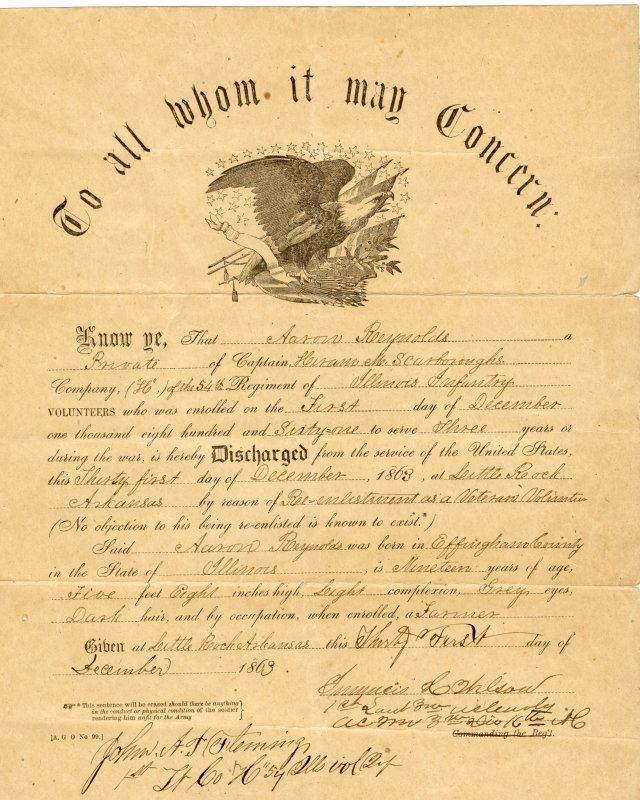 To all whom it may Concern:
Know ye, That Aaron Reynolds a
Private of Captain Hiram M. Scarboroughs
Company, (H.) of the 54th Regiment of Illinois Infantry
VOLUNTEERS who was enrolled on the First day of December
one thousand eight hundred and Sixty-one to serve Three years or
during the war, is hereby Discharged from the service of the United States,
this Thirty first day of December, 1863, at Little Rock
Arkansas by reason of Re-enlistment as a Veteran Volunteer
(No objection to his being re-enlisted is known to exist.*)
Said Aaron Reynolds was born in Effingham County
in the State of Illinois, is Nineteen years of age,
Five feet Eight inches high, Light complexion, Grey eyes,
Dark hair, and by occupation, when enrolled, a Farmer
Given at Little Rock Arkansas this Thirty First day of
December 1863.
* This sentence will be erased should there be anything
in the conduct or physical condition of the soldier
rendering him unfit for the Army
Wilson
1st Lieut
16th AC
Commanding the Reg't.
[A. G O No 99.]
John A. Fleming
1st Lt Co "H" 54 Ills vol